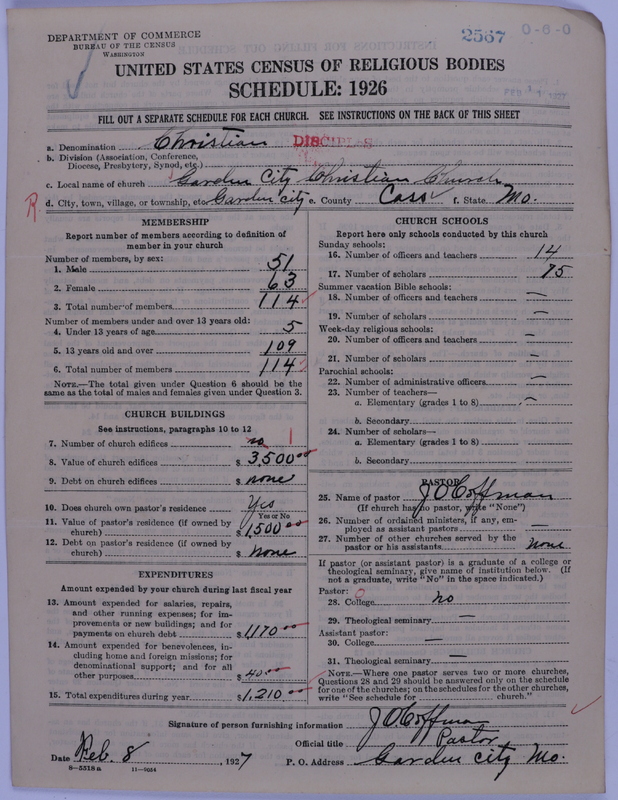 DEPARTMENT OF COMMERCE
BUREAU OF THE CENSUS
WASHINGTON
2567
0-6-0
UNITED STATES CENSUS OF RELIGIOUS BODIES
SCHEDULE: 1926
FILL OUT A SEPARATE SCHEDULE FOR EACH CHURCH. SEE INSTRUCTIONS ON THE BACK OF THIS SHEET
a. Denomination Christian DISCIPLES
b. Division (Association, Conference,
Diocese, Presbytery, Synod, etc.)
c. Local name of church Garden City Christian Church
R. d. City, town, village, or township, etc. Garden City e. County Cass f. State Mo.
MEMBERSHIP
Report number of members according to definition of
member in your church
Number of members, by sex:
1. Male 51
2. Female 63
3. Total number of members 114
Number of members under and over 13 years old:
4. Under 13 years of age 5
5. 13 years old and over 109
6. Total number of members 114
NOTE.—The total given under Question 6 should be the
same as the total of males and females given under Question 3.
CHURCH BUILDINGS
See instructions, paragraphs 10 to 12
7. Number of church edifices no 1
8. Value of church edifices $ 3,500 00
9. Debt on church edifices $ none
10. Does church own pastor's residence Yes
Yes or No
11. Value of pastor's residence (if owned by
church) $ 1,500 00
12. Debt on pastor's residence (if owned by
church) $ none
EXPENDITURES
Amount expended by church during last fiscal year
13. Amount expended for salaries, repairs,
and other running expenses; for im-
provements or new buildings; and for
payments on church debt $ 1170 00
14. Amount expended for benevolences, in-
cluding home and foreign missions; for
denominational support; and for all
other purposes $ 40 00
15. Total expenditures during year $ 1,210 00
CHURCH SCHOOLS
Report here only schools conducted by this church
Sunday schools:
16. Number of officers and teachers 14
17. Number of scholars 75
Summer vacation Bible schools:
18. Number of officers and teachers —
19. Number of scholars —
Week-day religious schools:
20. Number of officers and teachers —
21. Number of scholars —
Parochial schools:
22. Number of administrative officers —
23. Number of teachers—
a. Elementary (grades 1 to 8) —
b. Secondary
24. Number of scholars—
a. Elementary (grades 1 to 8) —
b. Secondary —
PASTOR
25. Name of pastor J O Coffman
(If church has no pastor, write "None")
26. Number of ordained ministers, if any, em-
ployed as assistant pastors —
27. Number of other churches served by the
pastor or his assistants none
If pastor (or assistant pastor) is a graduate of a college or
theological seminary, give name of institution below. (If
not a graduate, write "No" in the space indicated.)
Pastor: 0
28. College no
29. Theological seminary —
Assistant pastor:
30. College —
31. Theological seminary —
NOTE.—Where one pastor serves two or more churches,
Questions 28 and 29 should be answered only on the schedule
for one of the churches; on the schedules for the other churches,
write "See schedule for church."
Signature of person furnishing information J O Coffman
Official title Pastor
Date Feb. 8, 1927 P. O. Address Garden City Mo.
8—5518 a 11—9054